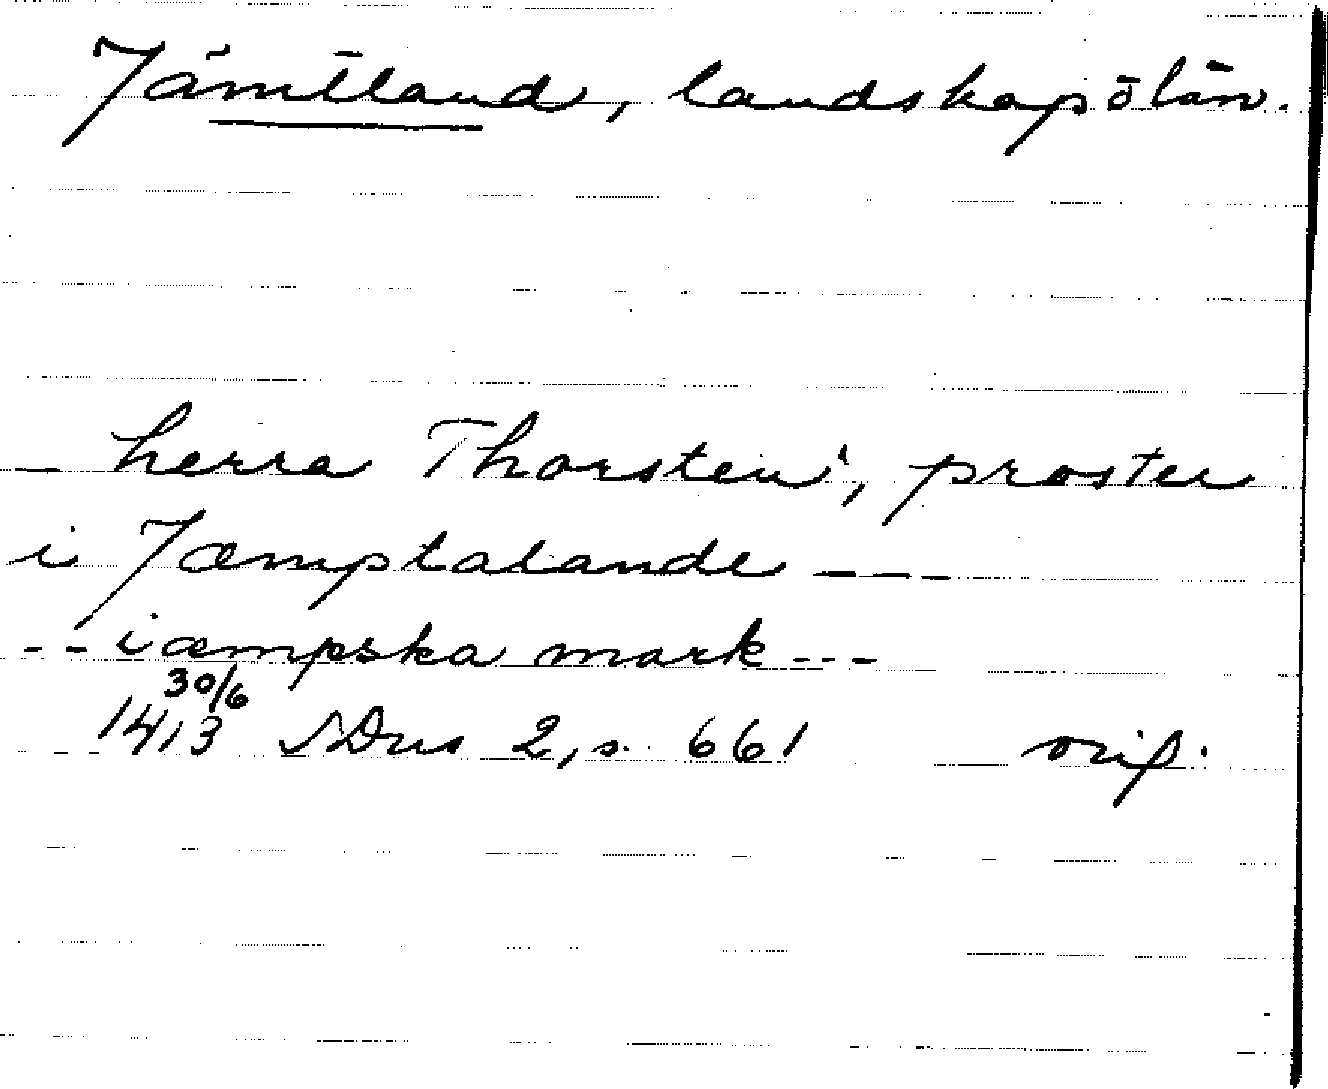 Jämtland, landskap o län.
- herra Thorsten', proster
i Jæmptalande ---
-- iæmpska mark ---
30/6
1413 SDns 2, s. 661 orig.